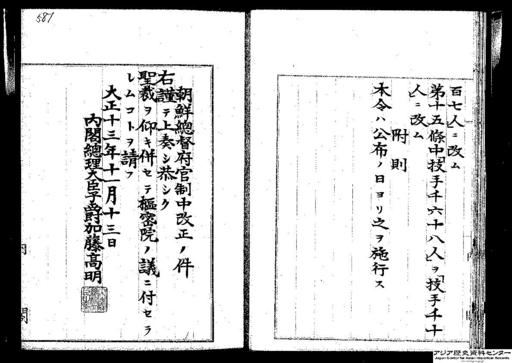 百七人ニ改ム
第十五條中「技手千六十八人」ヲ「技手千十
人」ニ改ム
附則
本令ハ公布ノ日ヨリ之ヲ施行ス
朝鮮總督府官制中改正ノ件
右謹テ上奏シ恭シク
聖裁ヲ仰キ併セテ樞密院ノ議ニ付セラ
レムコトヲ請フ
大正十三年十一月十三日
內閣總理大臣子爵加藤高明
581
アジア歴史資料センター
Japan Center for Asian Historical Records